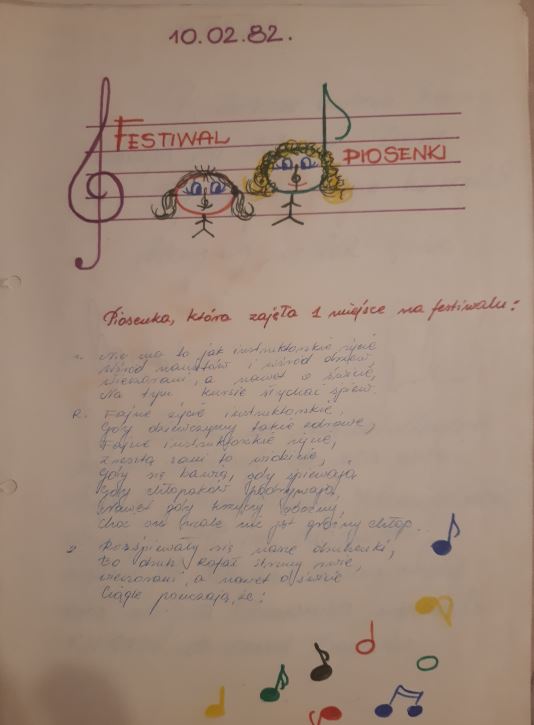 10.02.82.
FESTIWAL
PIOSENKI
Piosenka, która zajęła 1 miejsce na festiwalu:
1. Nie ma to jak instruktorskie życie
Wśród namiotów i wśród drzew
wieczorami, a nawet o świcie,
Na tym kursie słychać śpiew.
R. Fajne życie instruktorskie,
Gdy dziewczyny takie zdrowe,
Fajne instruktorskie życie,
Zresztą sami to widzicie,
Gdy się bawią, gdy śpiewają
Gdy chłopaków podrywają,
Nawet gdy krzyczy oboźny,
Choć on wcale nie jest groźny chłop...
2. Rozśpiewały się nasze druhenki,
Bo druh Rafał struny rwie,
wieczorami, a nawet o świcie
Ciągle pouczają, że: